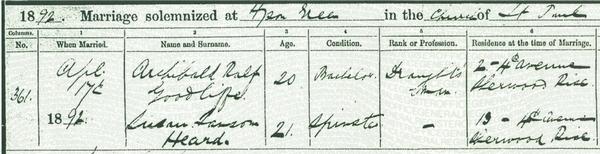 1892. Marriage solemnized at Hyson Green in the Church of St Paul
Columns. 1 2 3 4 5 6
No. When Married. Name and Surname. Age. Condition. Rank or Profession. Residence at the time of Marriage.
361. Apl. 17th 1892. Archibald Ralf Goodliffe. 20 Bachelor Draughtsman 2 - 4th avenue Sherwood Rise
Susan Ransom Heard. 21. Spinster - 13 - 4th avenue Sherwood Rise